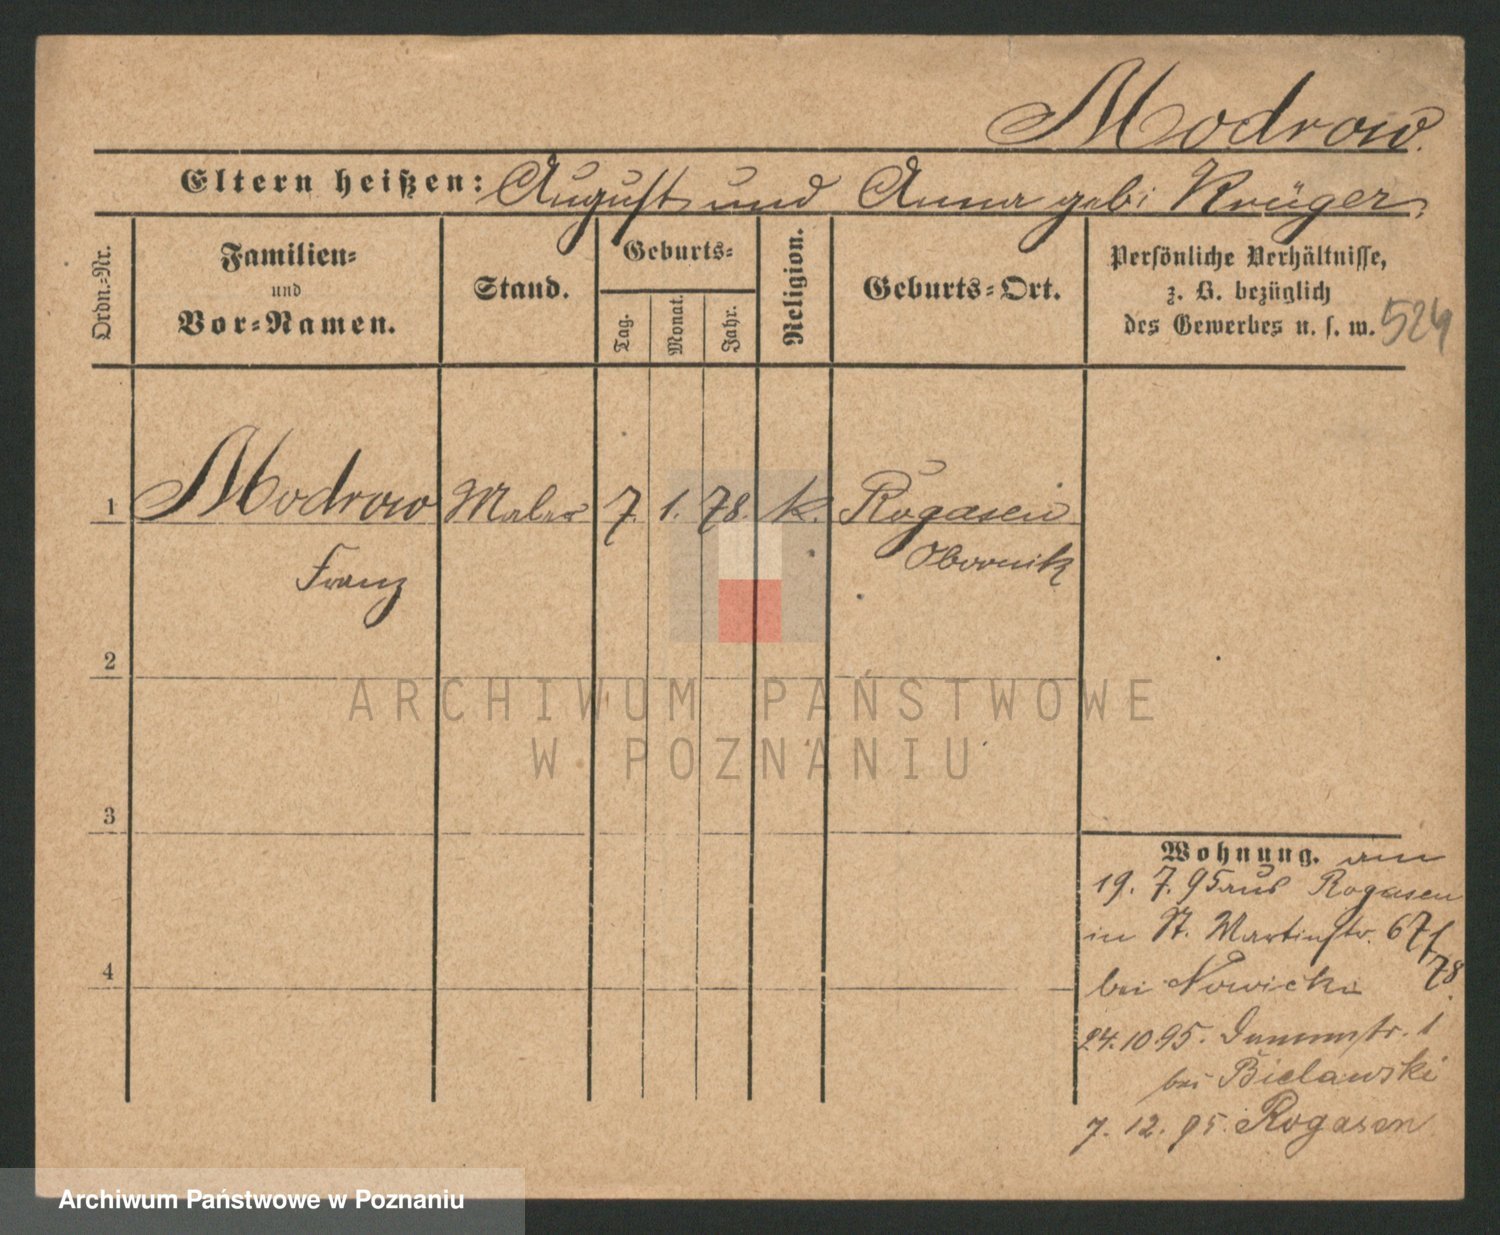 Modrow.
Eltern heißen: August und Anna geb: Krüger.
Ordn.-Nr.
Familien-
und
Vor-Namen.
Stand.
Geburts-
Tag.
Monat.
Jahr.
Religion.
Geburts-Ort.
Persönliche Verhältnisse,
z. B. bezüglich
des Gewerbes u. s. w.
524
1 Modrow Maler 7. 1. 78. k. Rogasen
Franz Obornik
2
3
4
ARCHIWUM PAŃSTWOWE
W POZNANIU
Wohnung. am
19. 7. 95 aus Rogasen
in St. Martinstr. 67/
78.
bei Nowicki
24.10.95. 1
bei Bielawski
7. 12. 95. Rogasen
Archiwum Państwowe w Poznaniu